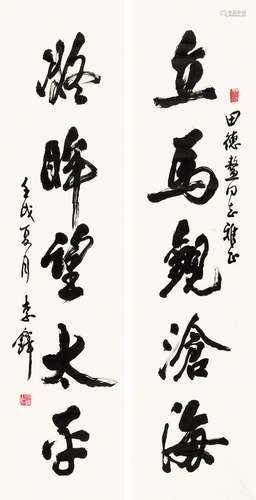 田德鰲同志雅正
立馬觀滄海
凝眸望太平
壬戌夏月 李鐸